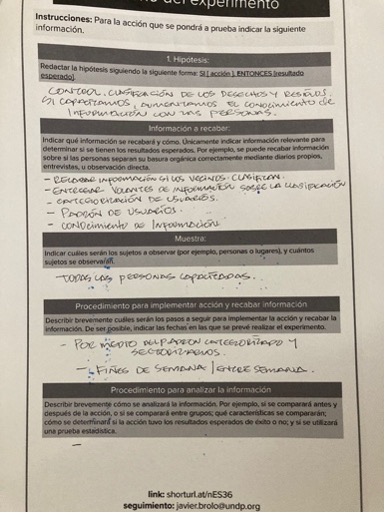 del experimento
Instrucciones: Para la acción que se pondrá a prueba indicar la siguiente
información.
1. Hipótesis:
Redactar la hipótesis siguiendo la siguiente forma: SI [ acción ], ENTONCES [resultado
esperado].
CONTROL, CLASIFICACIÓN DE LOS DESECHOS Y RESIDUOS.
SI CAPACITAMOS, AUMENTAMOS EL CONOCIMIENTO DE
INFORMACIÓN CON LAS PERSONAS.
Información a recabar:
Indicar qué información se recabará y cómo. Únicamente indicar información relevante para
determinar si se tienen los resultados esperados. Por ejemplo, se puede recabar información
sobre si las personas separan su basura orgánica correctamente mediante diarios propios,
entrevistas, u observación directa.
- RECABAR INFORMACIÓN SI LOS VECINOS CLASIFICAN.
- ENTREGAR VOLANTES DE INFORMACIÓN SOBRE LA CLASIFICACIÓN
- CATEGORIZACIÓN DE USUARIOS.
- PADRÓN DE USUARIOS.
- CONOCIMIENTO DE INFORMACIÓN.
Muestra:
Indicar cuáles serán los sujetos a observar (por ejemplo, personas o lugares), y cuántos
sujetos se observarán.
- TODAS LAS PERSONAS CAPACITADAS.
Procedimiento para implementar acción y recabar información
Describir brevemente cuáles serán los pasos a seguir para implementar la acción y recabar la
información. De ser posible, indicar las fechas en las que se prevé realizar el experimento.
- POR MEDIO DEL PADRÓN CATEGORIZADO Y
SECTORIZARLOS.
- FINES DE SEMANA / ENTRE SEMANA.
Procedimiento para analizar la información
Describir brevemente cómo se analizará la información. Por ejemplo, si se comparará antes y
después de la acción, o si se comparará entre grupos; qué características se compararán;
cómo se determinará si la acción tuvo los resultados esperados de éxito o no; y si se utilizará
una prueba estadística.
-
link: shorturl.at/nES36
seguimiento: javier.brolo@undp.org